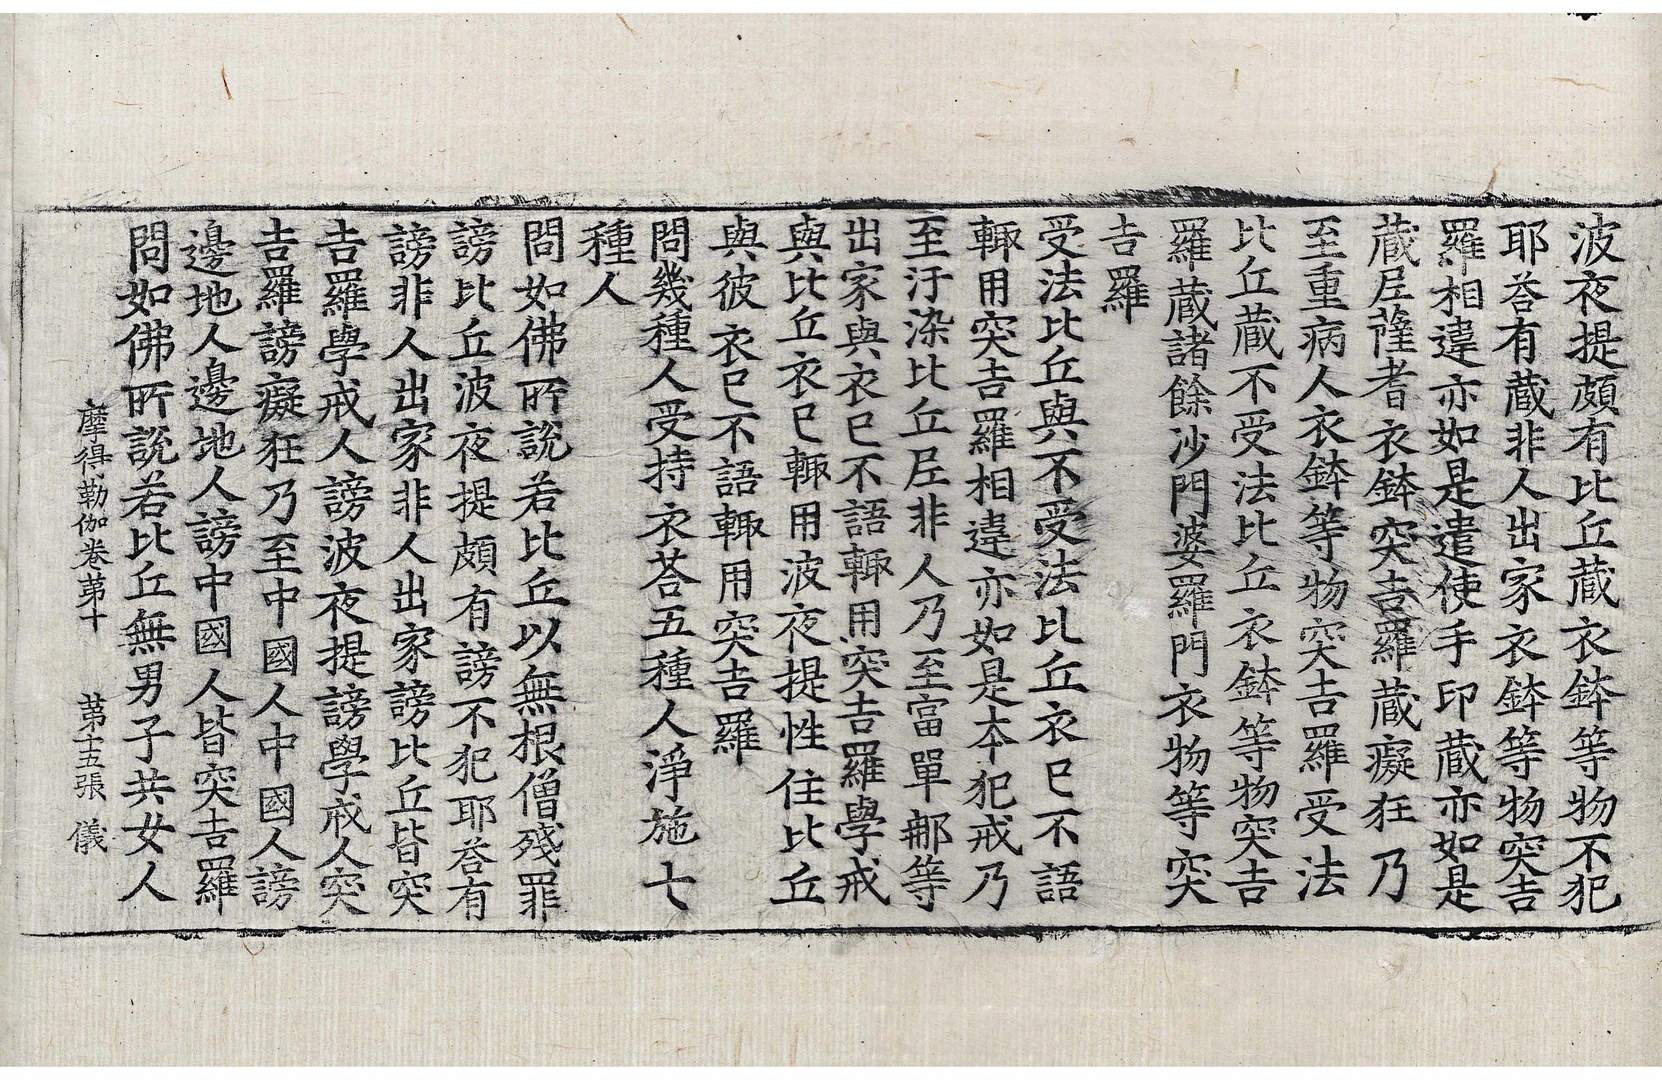 波夜提頗有比丘蔵衣鉢等物不犯
耶荅有蔵非人出家衣鉢等物突吉
羅相違亦如是遣使手印蔵亦如是
蔵𡰱薩耆衣鉢突吉羅蔵癡狂乃
至重病人衣鉢等物突吉羅受法
比丘蔵不受法比丘衣鉢等物突吉
羅蔵諸餘沙門婆羅門衣物等突
吉羅
受法比丘與不受法比丘衣已不語
輙用突吉羅相違亦如是本犯戒乃
至汙染比丘𡰱非人乃至富單那等
出家與衣已不語輙用突吉羅學戒
與比丘衣已輙用波夜提性住比丘
與彼衣已不語輙用突吉羅
問幾種人受持衣荅五種人淨施七
種人
問如佛所說若比丘以無根僧殘罪
謗比丘波夜提頗有謗不犯耶荅有
謗非人出家非人出家謗比丘皆突
吉羅學戒人謗波夜提謗學戒人突
吉羅謗癡狂乃至中國人中國人謗
邊地人邊地人謗中國人皆突吉羅
問如佛所說若比丘無男子共女人
摩得勒伽卷第十 第十五張 儀